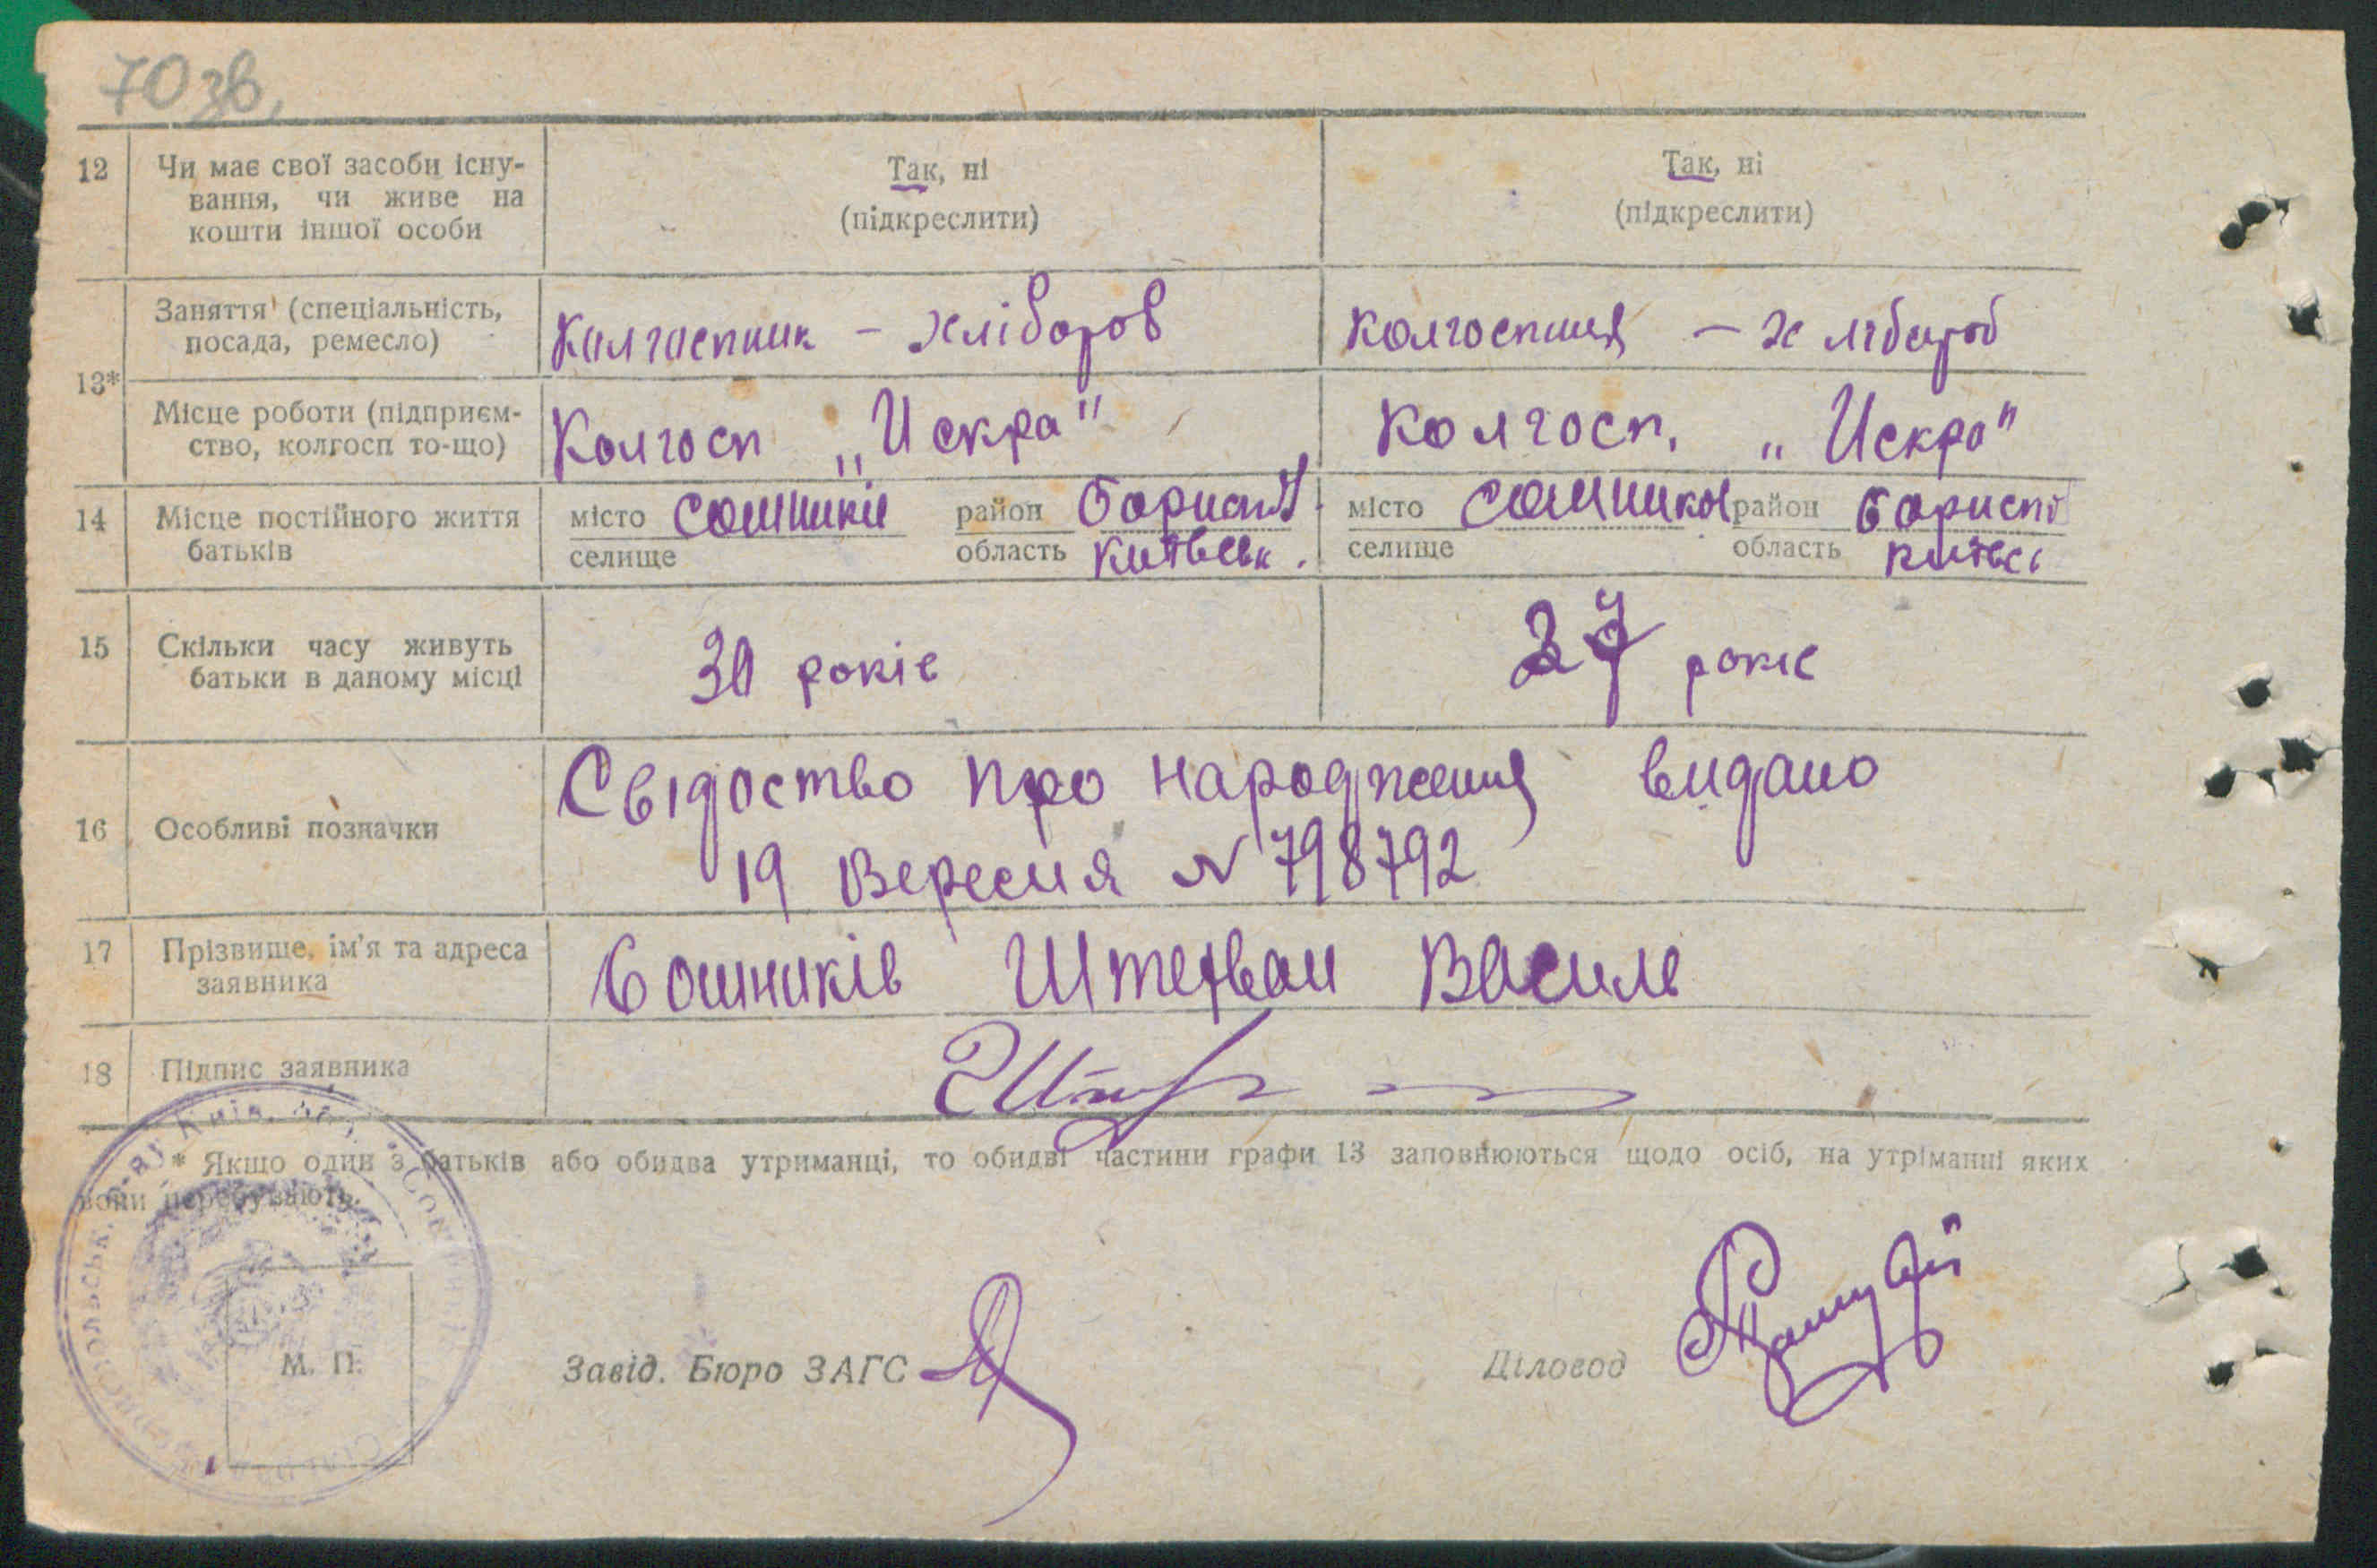 70 зв.
12 Чи має свої засоби існу- Так, ні Так, ні
вання, чи живе на (підкреслити) (підкреслити)
кошти іншої особи
Заняття (спеціальність, Колгоспник – хлібороб колгоспниця – хлібороб
посада, ремесло)
13*
Місце роботи (підприєм- Колгосп „Искра" Колгосп. „Искра"
ство, колгосп то-що)
14 Місце постійного життя місто Сошників район Борисп місто Сошников район Борисп
батьків селище область Київськ. селище область Київсь
15 Скільки часу живуть 30 років 27 років
батьки в даному місці
Свідоство про народження видано
16 Особливі позначки
19 Вересня N 798792
17 Прізвище, ім'я та адреса Сошників Василь
заявника
18 Підпис заявника
* Якщо один з батьків або обидва утриманці, то обидві частини графи 13 заповнюються щодо осіб, на утріманні яких
вони перебувають.
М. П.
Завід. Бюро ЗАГС Діловод